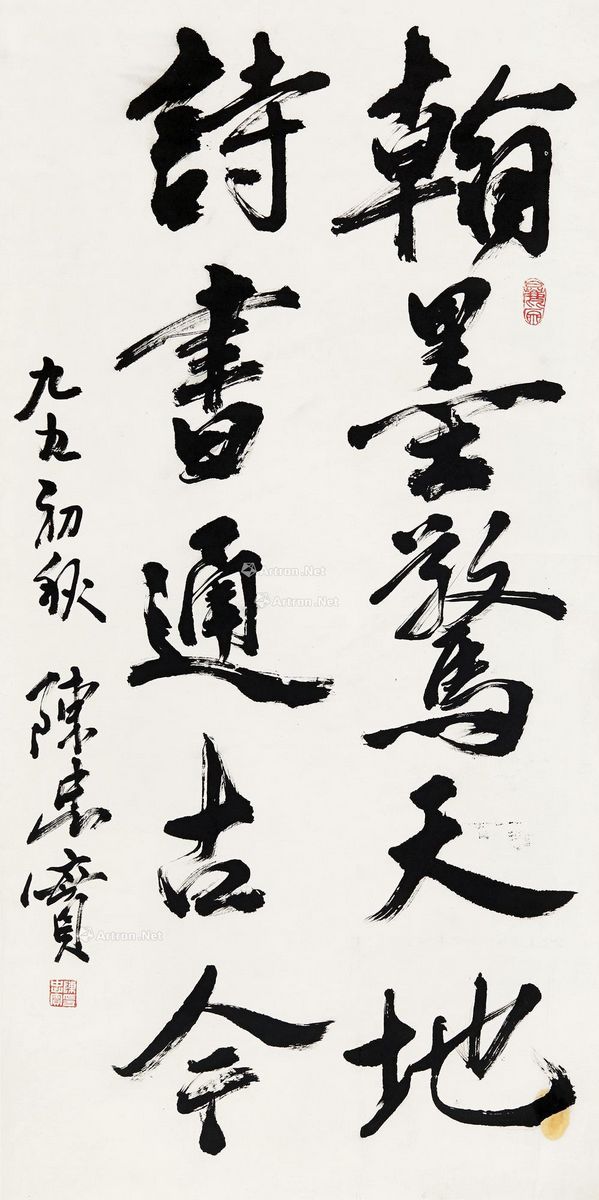 翰墨驚天地
詩書通古今
九九初秋 陳忠實
Artron.Net
Artron.Net
Artron.Net